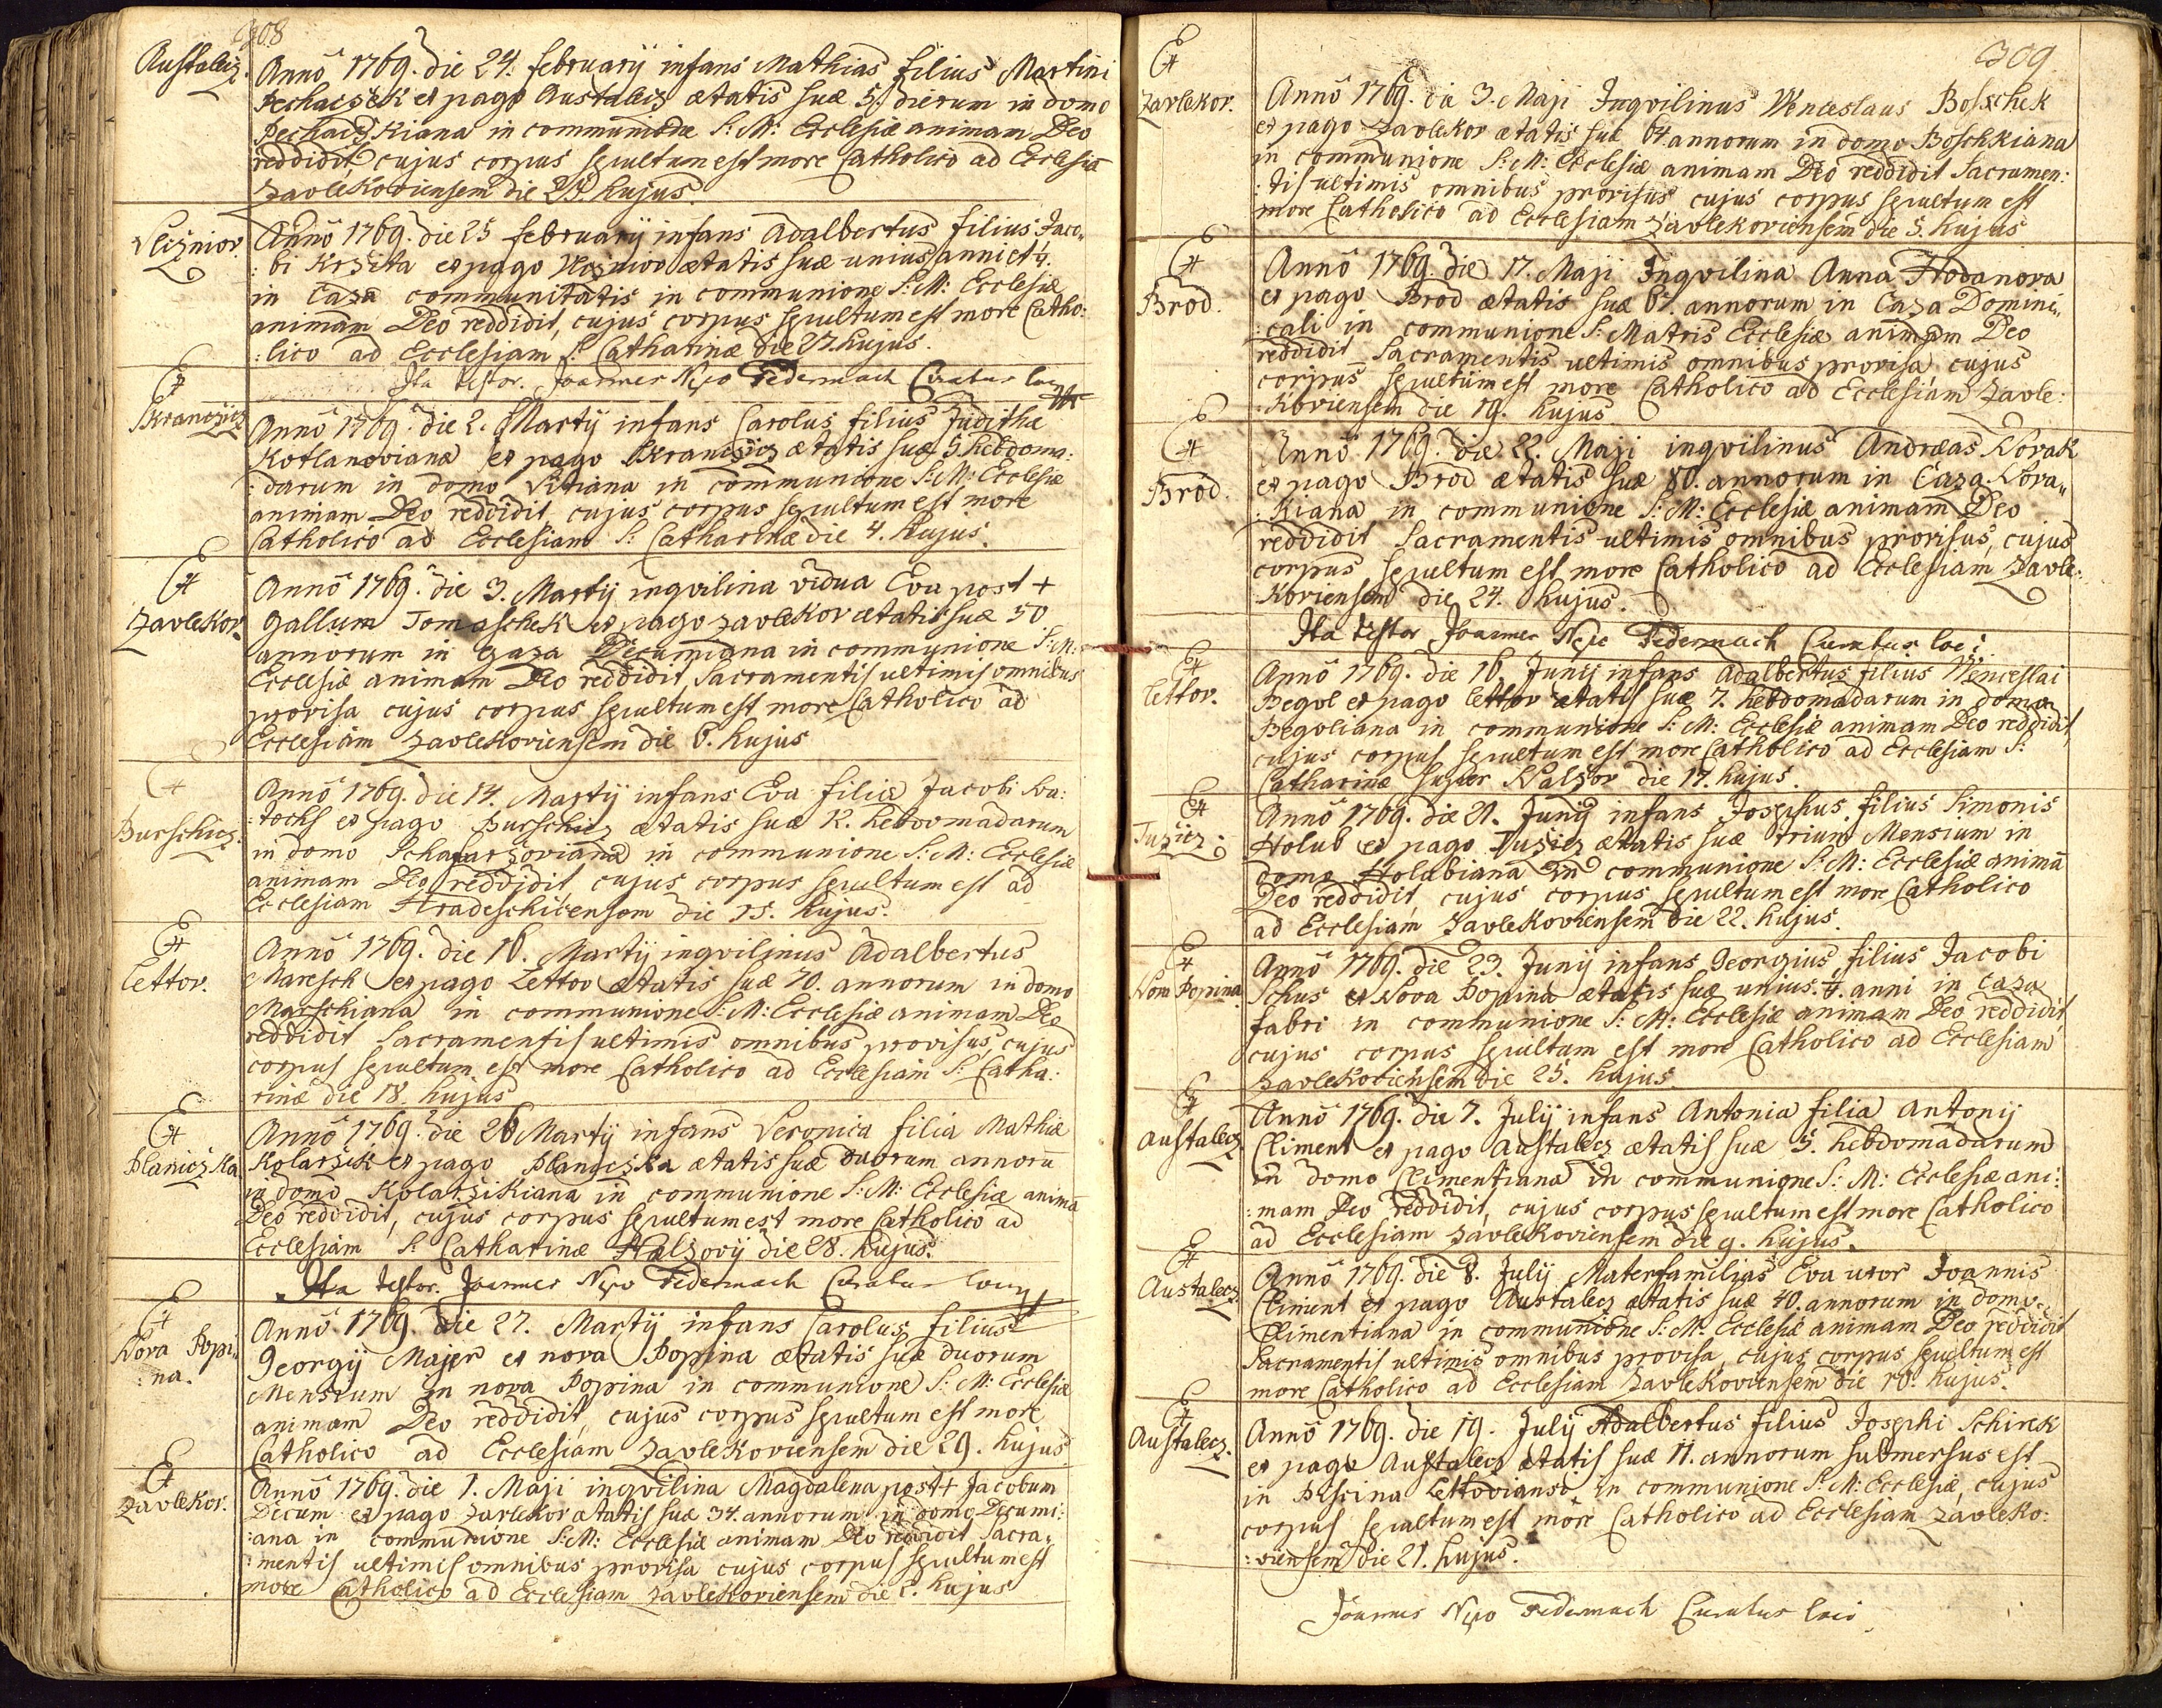 308
Austalecz. Anno 1769. die 24. february infans Mathias filius Martini
Pechaczek ex pago Austalecz ætatis suæ 5. dierum in domo
Pechaczkiana in communione S: M: Ecclesiæ animam Deo
reddidit, cujus corpus sepultum est more Catholico ad Ecclesiã
Zavlekoviensem die 25. hujus.
Anno 1769. die 25 february infans Adalbertus filius Jaco„
:bi ex pago ætatis suæ unius anni et 1/4.
in Casa communitatis in communione S: M: Ecclesiæ
animam Deo reddidit, cujus corpus sepultum est more Catho:
:lico ad Ecclesiam S: Catharinæ die 27. hujus.
Ita testor. Joannes Nepo Federmach Curatus loci
Anno 1769. die 2. Martij infans Carolus filius Judithæ
Kotlanovianæ ex pago ætatis suæ 5 hebdoma:
:darum in domo Vitiana in communione S: M: Ecclesiæ
animam Deo reddidit, cujus corpus sepultum est more
Catholico ad Ecclesiam S: Catharinæ die 4. hujus.
Zavlekov. Anno 1769. die 3. Martij inqvilina vidua Eva post +
Gallum Tomaschek ex pago Zavlekov ætatis suæ 50
annorum in Casa Decumiana in communione S: M:
Ecclesiæ animam Deo reddidit, Sacramentis ultimis omnibus
provisa cujus corpus sepultum est more Catholico ad
Ecclesiam Zavlekoviensem die 6. hujus
Burschicz. Anno 1769. die 14. Martij infans Eva filia Jacobi
ex pago Burschicz ætatis suæ 12. hebdomadarum
in domo in communione S: M: Ecclesiæ
animam Deo reddidit, cujus corpus sepultum est ad
Ecclesiam Hradeschicensem die 15. hujus.
Lettov. Anno 1769. die 16. Martij inqvilinus Adalbertus
Maresch ex pago Lettov ætatis suæ 70. annorum in domo
Marschiana in communione S: M: Ecclesiæ animam Deo
reddidit Sacramentis ultimis omnibus provisus, cujus
corpus sepultum est more Catholico ad Ecclesiam S: Catha:
rinæ die 18. hujus
Planiczka Anno 1769. die 26 Martij infans Veronica filia Mathiæ
Kolarzik ex pago Planiczka ætatis suæ duorum annorũ
in domo Kolarzikiana in communione S: M: Ecclesiæ animã
Deo reddidit, cujus corpus sepultum est more Catholico ad
Ecclesiam S: Catharinæ die 28. hujus.
Ita testor. Joannes Nepo Federmach Curatus loci
Nova Popi„
:na. Anno 1769. die 27. Martij infans Carolus filius
Georgij Majer ex nova Popina ætatis suæ duorum
Mensium in nova Popina in communione S: M: Ecclesiæ
animam Deo reddidit, cujus corpus sepultum est more
Catholico ad Ecclesiam Zavlekoviensem die 29. hujus
Zavlekov. Anno 1769. die 1. Maji inqvilina Magdalena post + Jacobum
Decum ex pago Zavlekov ætatis suæ 34. annorum in domo Decumi:
:ana in communione S: M: Ecclesiæ animam Deo reddidit Sacra„
:mentis ultimis omnibus provisa cujus corpus sepultum est
more Catholico ad Ecclesiam Zavlekoviensem die hujus
309
Zavlekov. Anno 1769. die 3. Maji Inqvilinus Wenceslaus Boschek
ex pago Zavlekov ætatis suæ 64 annorum in domo Boschkiana
in communione S: M: Ecclesiæ animam Deo reddidit Sacramen:
:tis ultimis omnibus provisus cujus corpus sepultum est
more Catholico ad Ecclesiam Zavlekoviensem die 5. hujus
Brod. Anno 1769. die 17. Maji Inqvilina Anna Hodanova
ex pago Brod ætatis suæ annorum in Casa Domini„
:cali in communione S: Matris Ecclesiæ animam Deo
reddidit Sacramentis ultimis omnibus provisa cujus
corpus sepultum est more Catholico ad Ecclesiam Zavle:
:koviensem die 19. hujus
Brod. Anno 1769. die 22. Maji inqvilinus Andreas Novak
ex pago Brod ætatis suæ 80. annorum in Casa Nova„
:kiana in communione S: M: Ecclesiæ animam Deo
reddidit Sacramentis ultimis omnibus provisus, cujus
corpus sepultum est more Catholico ad Ecclesiam Zavle:
:koviensem die 24. hujus.
Ita testor Joannes Nepo Federmach Curatus loci
Lettov. Anno 1769. die 16. Junij infans Adalbertus filius Wenceslai
Begvl ex pago Lettov ætatis suæ 7. hebdomadarum in domo
Begvliana in communione S: M: Ecclesiæ animam Deo reddidit,
cujus corpus sepultum est more Catholico ad Ecclesiam S:
Catharinæ super die 17. hujus.
Tuzicz. Anno 1769. die 21. Junij infans Josephus filius Simonis
Holub ex pago Tuzicz ætatis suæ trium Mensium in
domo Holubiana in communione S: M: Ecclesiæ animã
Deo reddidit, cujus corpus sepultum est more Catholico
ad Ecclesiam Zavlekoviensem die 22. hujus.
Nova Popina Anno 1769. die 23. Junij infans Georgius filius Jacobi
Schus ex Nova Popina ætatis suæ unius 1/4. anni in Casa
fabri in communione S: M: Ecclesiæ animam Deo reddidit,
cujus corpus sepultum est more Catholico ad Ecclesiam
Zavlekoviensem die 25. hujus
Austalecz Anno 1769. die 7. Julij infans Antonia filia Antonij
Climent ex pago Austalecz ætatis suæ 5. hebdomadarum
in domo Climentiana in communione S: M: Ecclesiæ ani:
:mam Deo reddidit, cujus corpus sepultum est more Catholico
ad Ecclesiam Zavlekoviensem die 9. hujus.
Austalecz Anno 1769. die 8. Julij Materfamilias Eva uxor Joannis
Climent ex pago Austalecz ætatis suæ 40. annorum in domo
Climentiana in communione S: M: Ecclesiæ animam Deo reddidit
Sacramentis ultimis omnibus provisa, cujus corpus sepultum est
more Catholico ad Ecclesiam Zavlekoviensem die 10. hujus.
Austalecz. Anno 1769. die 19. Julij Adalbertus filius Josephi Schirek
ex pago Austalecz ætatis suæ 11. annorum submersus est
in Piscina Lettoviansi in communione S: M: Ecclesiæ, cujus
corpus sepultum est more Catholico ad Ecclesiam Zavleko:
:viensem die 21. hujus.
Joannes Nepo Federmach Curatus loci